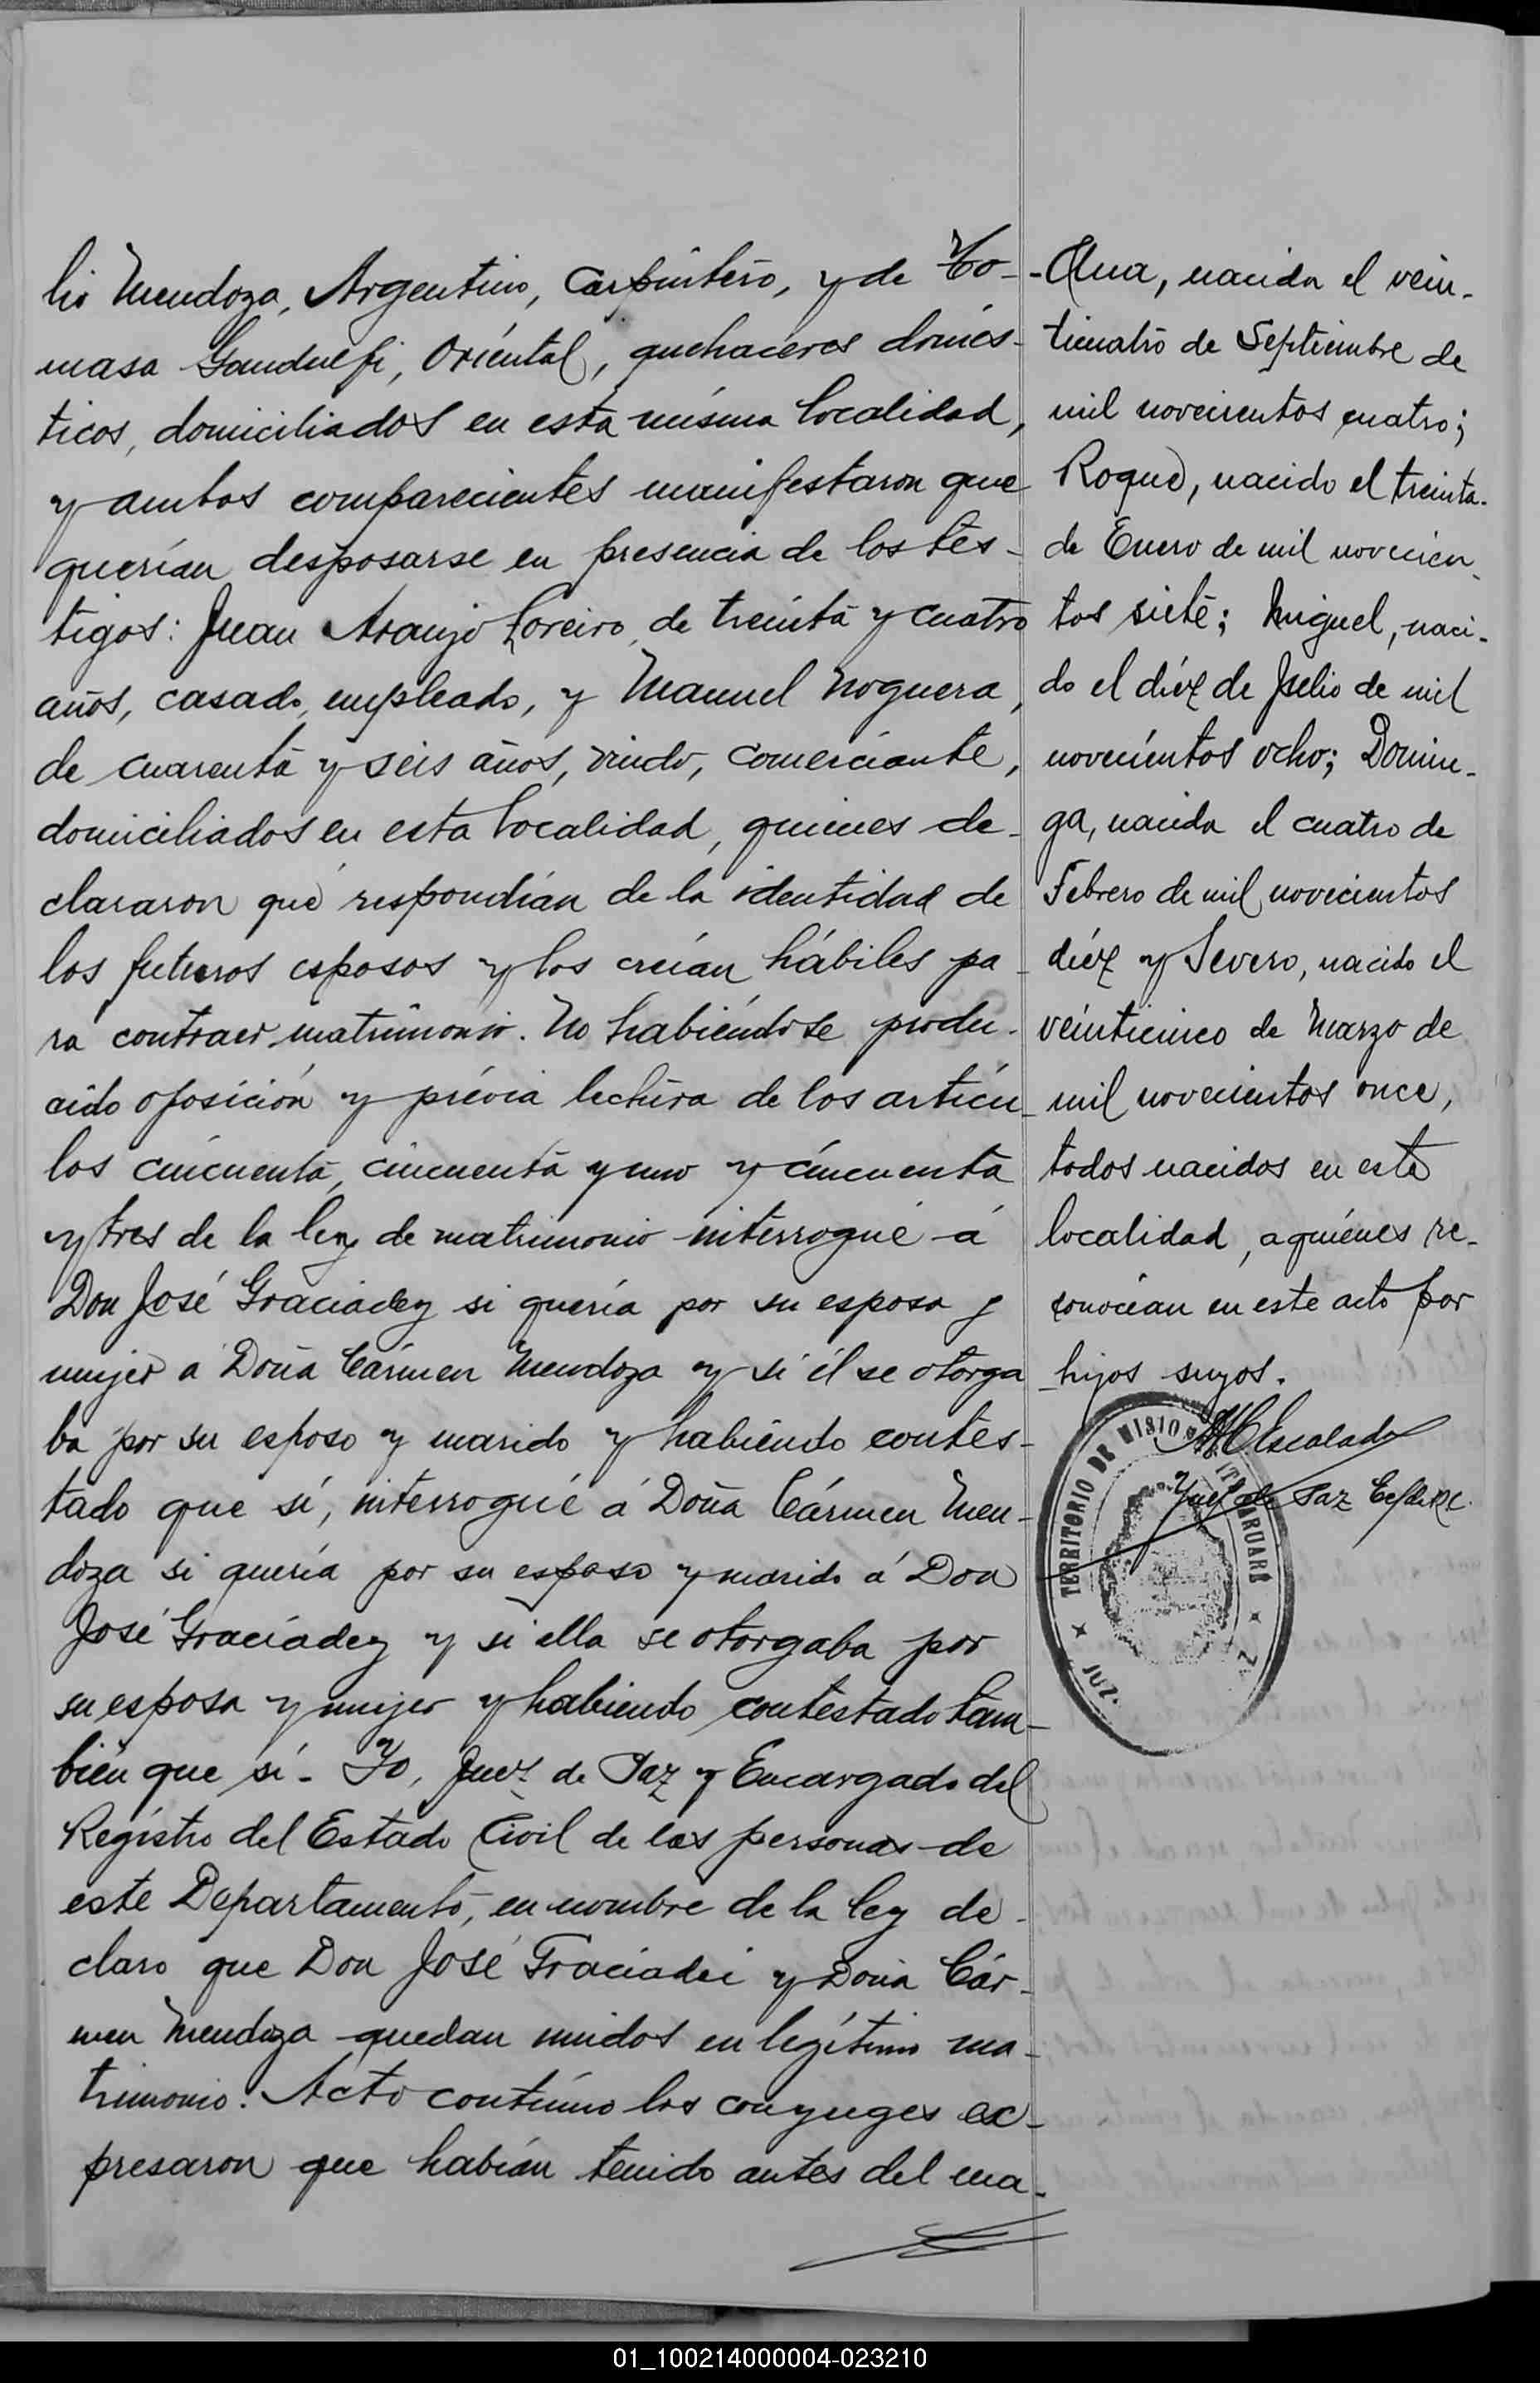 lio Mendoza, Argentino, Carpintero, y de To-
masa Gandulfi, Oriental, quehaceres domés-
ticos, domiciliados en esta misma localidad,
y ambos comparecientes manifestaron que
querían desposarse en presencia de los tes-
tigos: Juan Araujo Loreiro, de treinta y cuatro
años, casado, empleado, y Manuel Noguera,
de cuarenta y seis años, viudo, comerciante,
domiciliados en esta localidad, quienes de-
clararon que respondían de la identidad de
los futuros esposos y los creían hábiles pa-
ra contraer matrimonio. No habiéndose produ-
cido oposición y prévia lectura de los artícu-
los cincuenta, cincuenta y uno y cincuenta
y tres de la ley de matrimonio interrogué á
Don José Graciadey si quería por su esposa y
mujer a Doña Cármen Mendoza y si él se otorga
ba por su esposo y marido y habiendo contes-
tado que sí, interrogué á Doña Cármen Men-
doza si quería por su esposo y marido á Don
José Graciadey y si ella se otorgaba por
su esposa y mujer y habiendo contestado tam-
bién que sí - Yo, Juez de Paz y Encargado del
Registro del Estado Civil de las personas de
este Departamento, en nombre de la ley de-
claro que Don José Graciadei y Doña Cár-
men Mendoza quedan unidos en legítimo ma-
trimonio. Acto contínuo los conyuges ex-
presaron que habían tenido antes del ma-
-Ana, nacida el vein-
ticuatro de Septiembre de
mil novecientos cuatro;
Roque, nacido el treinta
de Enero de mil novecien-
tos siete; Miguel, naci-
do el diéz de Julio de mil
novecientos ocho; Domin-
ga, nacida el cuatro de
Febrero de mil novecientos
diéz y Severo, nacido el
veinticinco de Marzo de
mil novecientos once,
todos nacidos en esta
localidad, a quienes re-
conocían en este acto por
hijos suyos.
Escalada
Juez de Paz
TERRITORIO DE MISIONES
01_100214000004-023210